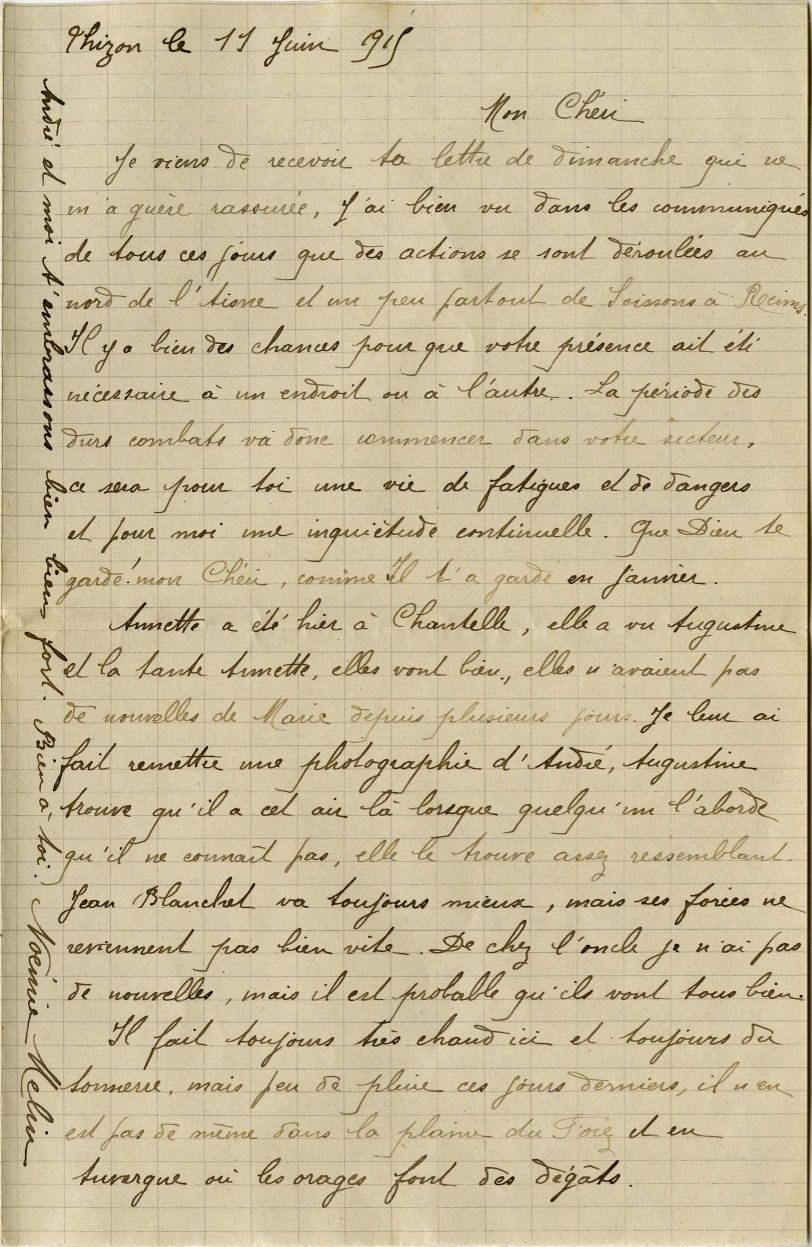 Thizon le 11 Juin 1915
Mon Chéri
Je viens de recevoir ta lettre de dimanche qui ne
m'a guère rassurée, J'ai bien vu dans les communiqués
de tous ces jours que des actions se sont déroulées au
nord de l'Aisne et un peu partout de Soissons à Reims.
Il y a bien des chances pour que votre présence ait été
nécessaire à un endroit ou à l'autre. La période des
durs combats va donc commencer dans votre secteur,
ce sera pour toi une vie de fatigues et de dangers
et pour moi une inquiétude continuelle. Que Dieu te
garde! mon Chéri, comme Il t'a gardé en janvier.
Annette a été hier à Chantelle, elle a vu Augustine
et la tante Annette, elles vont bien, elles n'avaient pas
de nouvelles de Marie depuis plusieurs jours. Je leur ai
fait remettre une photographie d'André, Augustine
trouve qu'il a cet air là lorsque quelqu'un l'aborde
qu'il ne connaît pas, elle le trouve assez ressemblant.
Jean Blanchet va toujours mieux, mais ses forces ne
reviennent pas bien vite. De chez l'oncle je n'ai pas
de nouvelles, mais il est probable qu'ils vont tous bien.
Il fait toujours très chaud ici et toujours du
tonnerre, mais peu de pluie ces jours derniers, il n'en
est pas de même dans la plaine du Forez et en
Auvergne où les orages font des dégâts.
André et moi t'embrassons bien bien fort. Bien à toi. Noémie Melin